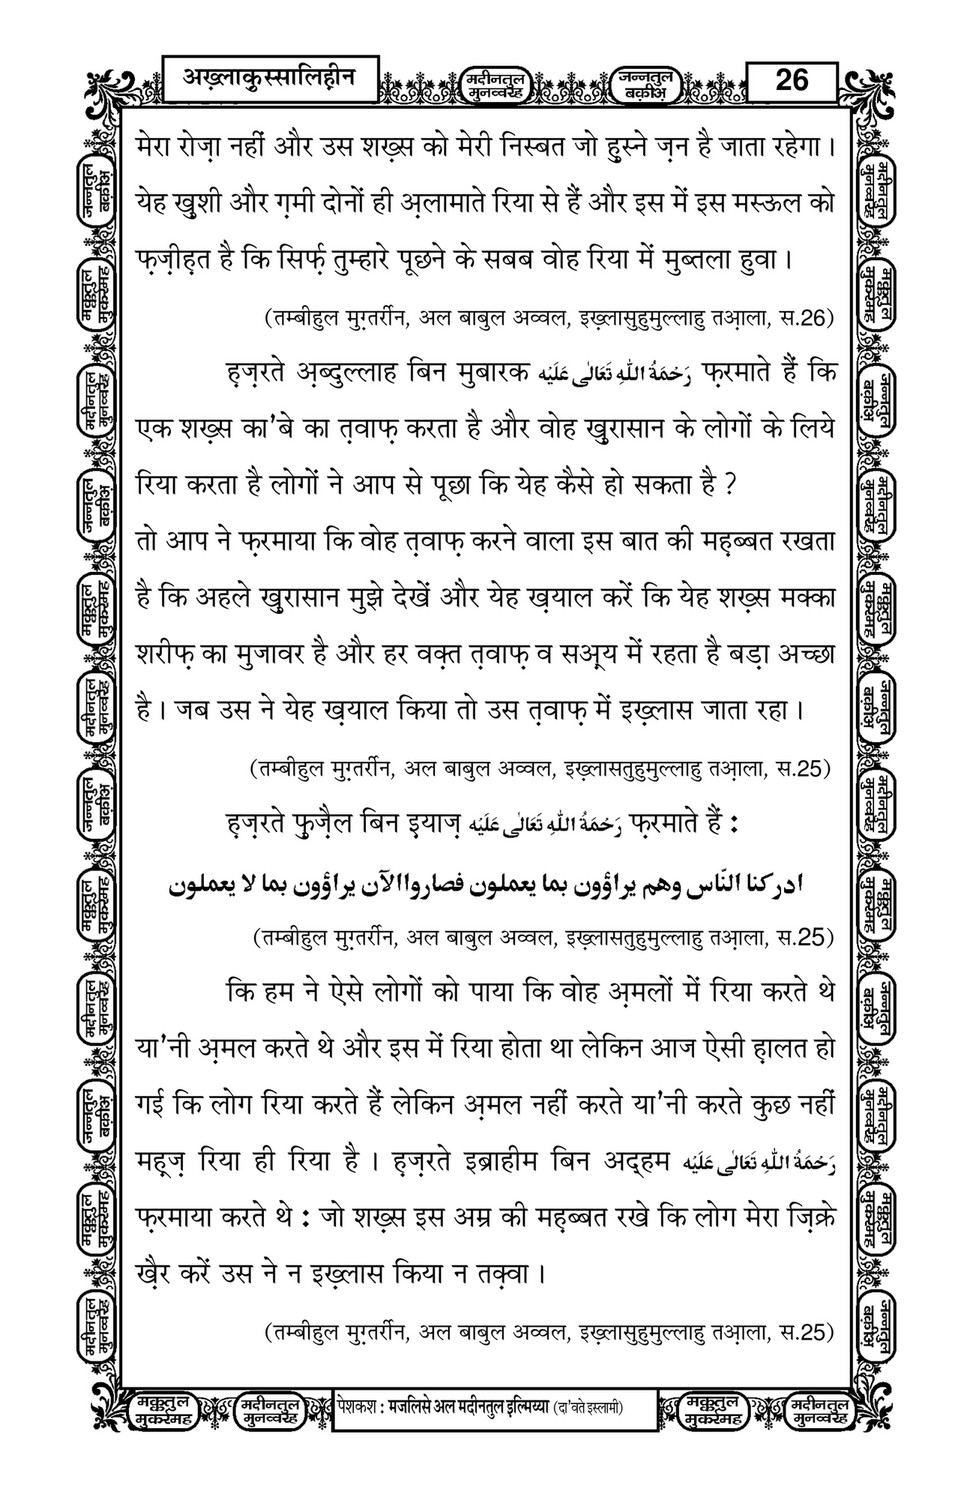 अख़्लाकुस्सालिह़ीन
मदीनतुल मुनव्वरह
जन्नतुल बक़ीअ़
26
मेरा रोज़ा नहीं और उस शख़्स को मेरी निस्बत जो हुस्ने ज़न है जाता रहेगा ।
येह खुशी और ग़मी दोनों ही अ़लामाते रिया से हैं और इस में इस मस्ऊल को
फ़ज़ीह़त है कि सिर्फ़ तुम्हारे पूछने के सबब वोह रिया में मुब्तला हुवा ।
(तम्बीहुल मुग़्तर्रीन, अल बाबुल अव्वल, इख़्लासुहुमुल्लाहु तआ़ला, स.26)
ह़ज़रते अ़ब्दुल्लाह बिन मुबारक رَحْمَةُ اللهِ تَعَالٰی عَلَيْه फ़रमाते हैं कि
एक शख़्स का'बे का त़वाफ़ करता है और वोह खुरासान के लोगों के लिये
रिया करता है लोगों ने आप से पूछा कि येह कैसे हो सकता है ?
तो आप ने फ़रमाया कि वोह त़वाफ़ करने वाला इस बात की मह़ब्बत रखता
है कि अहले खुरासान मुझे देखें और येह ख़याल करें कि येह शख़्स मक्का
शरीफ़ का मुजावर है और हर वक़्त त़वाफ़ व सअ़्य में रहता है बड़ा अच्छा
है । जब उस ने येह ख़याल किया तो उस त़वाफ़ में इख़्लास जाता रहा ।
(तम्बीहुल मुग़्तर्रीन, अल बाबुल अव्वल, इख़्लासतुहुमुल्लाहु तआ़ला, स.25)
ह़ज़रते फुज़ैल बिन इ़याज़ رَحْمَةُ اللهِ تَعَالٰی عَلَيْه फ़रमाते हैं :
ادركنا النّاس وهم يراؤون بما يعملون فصاروا الآن يراؤون بما لا يعملون
(तम्बीहुल मुग़्तर्रीन, अल बाबुल अव्वल, इख़्लासतुहुमुल्लाहु तआ़ला, स.25)
कि हम ने ऐसे लोगों को पाया कि वोह अ़मलों में रिया करते थे
या'नी अ़मल करते थे और इस में रिया होता था लेकिन आज ऐसी ह़ालत हो
गई कि लोग रिया करते हैं लेकिन अ़मल नहीं करते या'नी करते कुछ नहीं
मह़ज़ रिया ही रिया है । ह़ज़रते इब्राहीम बिन अद्हम رَحْمَةُ اللهِ تَعَالٰی عَلَيْه
फ़रमाया करते थे : जो शख़्स इस अम्र की मह़ब्बत रखे कि लोग मेरा ज़िक्रे
ख़ैर करें उस ने न इख़्लास किया न तक़्वा ।
(तम्बीहुल मुग़्तर्रीन, अल बाबुल अव्वल, इख़्लासुहुमुल्लाहु तआ़ला, स.25)
मक्कतुल मुकर्रमह
मदीनतुल मुनव्वरह
पेशकश : मजलिसे अल मदीनतुल इल्मिय्या (दा'वते इस्लामी)
मक्कतुल मुकर्रमह
मदीनतुल मुनव्वरह